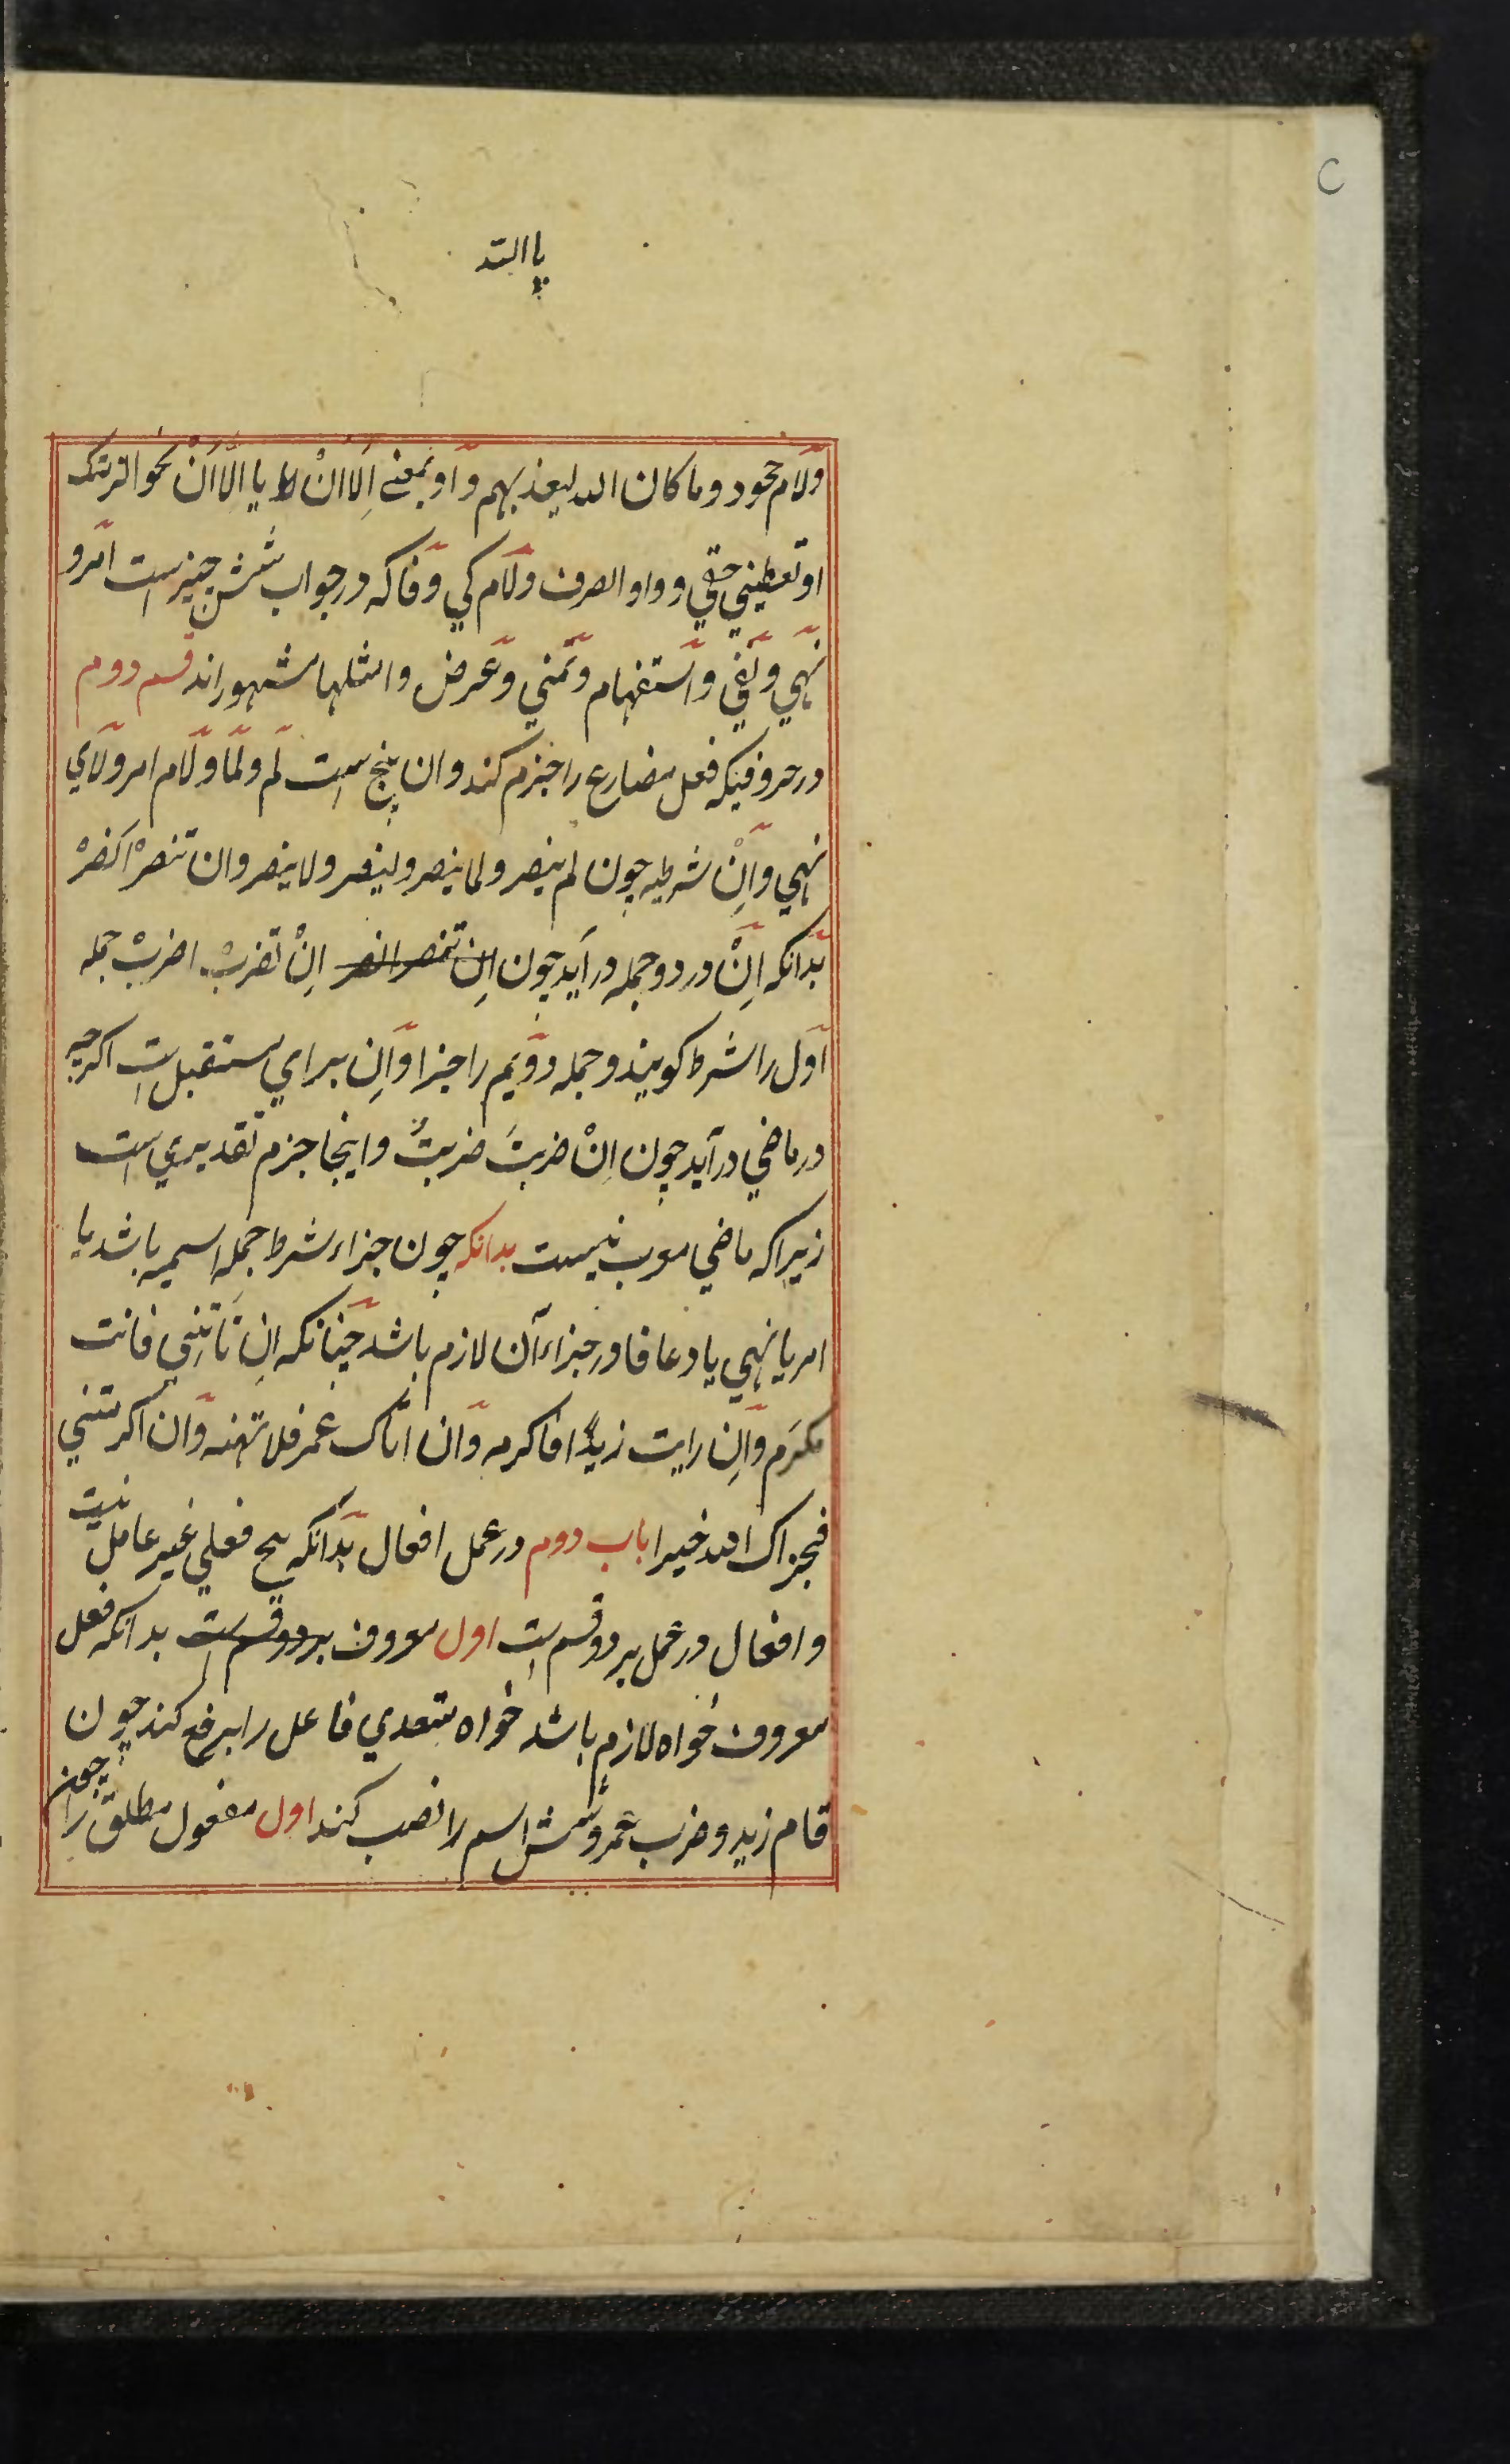 یا الله
ولام جحود وما کان الله لیعذبهم واو بمعنی اِلَا انْ یا الّا اَنْ نحو الزمنک
او تعطینی حقی و واو الصرف ولام کی وفا که در جواب شش چیز است امر و
نهی ونفی واستفهام وتمنی وعرض وامثلها مشهور اند قسم دوم
در حروفیکه فعل مضارع را جزم کند وان پنج است لم ولما ولام امر ولای
نهی واِنْ شرطیه چون لم ینصر ولما ینصر ولینصر ولا ینصر وان تنصرْ انصرْ
بدانکه اِنْ در دو جمله در آید چون اِن تنصر انصر اِنْ تضربْ اضربْ جمله
اول را شرط کویند و جمله دویم را جزا واِن برای مستقبل است اکرچه
در ماضی در آید چون اِنْ ضربتَ ضربتُ واینجا جزم تقدیری است
زیراکه ماضی معرب نیست بدانکه چون جزاء شرط جمله اسمیه باشد یا
امر یا نهی یا دعا فا در جزاء آن لازم باشد چنانکه اِن تَاتِنی فانت
مکرَم واِن رایت زیدًا فاکرمه وان اتاک عمر فلا تهنه وان اکرمتنی
فجزاک الله خیرا باب دوم در عمل افعال بدانکه هیچ فعلی غیر عامل نیست
وافعال در عمل بر دو قسم است اول معروف بر دو قسم است بدانکه فعل
معروف خواه لازم باشد خواه متعدی فاعل را برفع کند چون
قام زید وضرب عمرو وشش اسم را نصب کند اول مفعول مطلق را چون